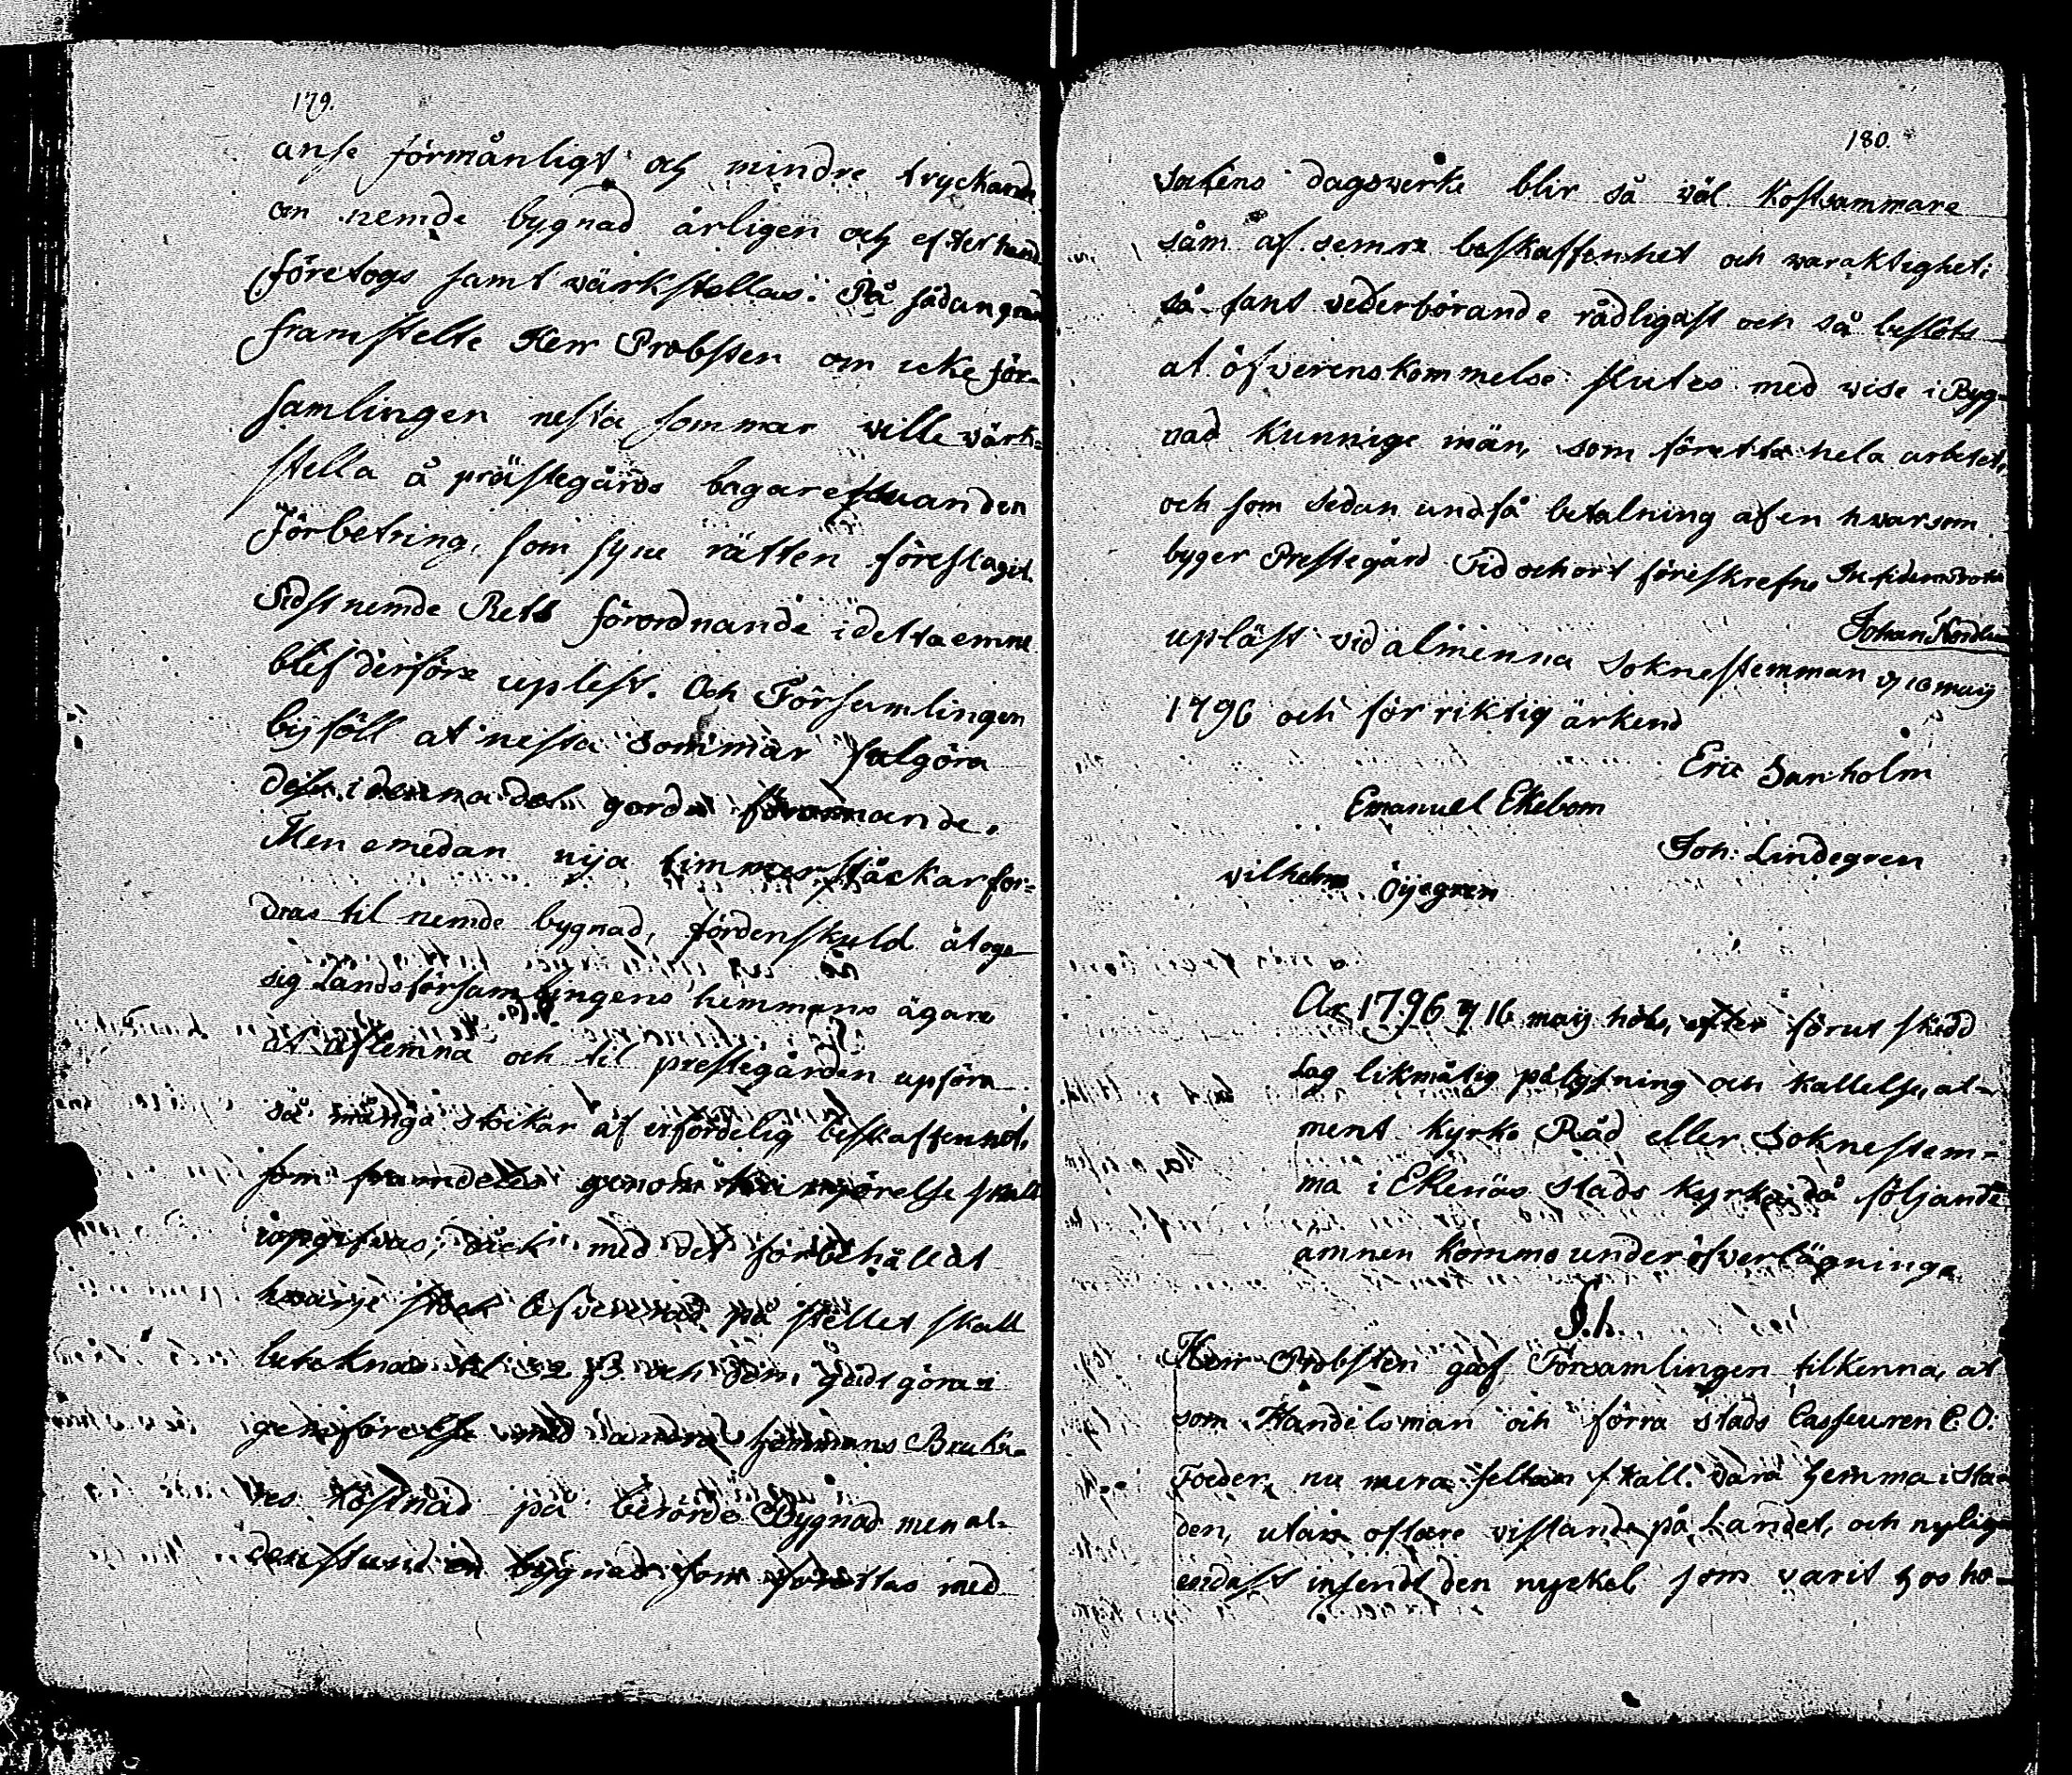 179.
anse förmånligt och mindre tryckande
om nemde bygnad årligen och efterhand
företogs samt värkstellas. På sådan grund
framstelte Herr Probsten om icke för-
samlingen nesta sommar ville värk-
stella å prästegårds bagarestuan den
Förbetring, som syne rätten föreslagit.
Sidst nemde Rets förordnande i detta emne
blef derföre uplest. Och Församlingen
biföll at nesta sommar
i denna del
Men emedan nya timmerståckar for-
dras til nemde bygnad, fördenskuld åtogo
sig Landsförsamlingens hemmans ägare
at aflemna och til prestegården upföra
så många stockar af erforderlig beskaffenhet,
som framdeles genom skall
upgifvas, dåck med det förbehåll at
hvarje stock lefvererad på stellet skall
beteknas til 32 ß och
med andra hemmans Bruka-
res kostnad på berörde Bygnad men al-
denstund en bygnad som förettas med
180.
dagsverke blir så väl kostsammare
såm af semre beskaffenhet och varaktighet;
så fant vederbörande rådligast och så beslöts
at öfverenskommelse slutes med vise i Byg-
nad kunnige män, som företta hela arbetet,
och som sedan undfå betalning af en hvar som
byger Prestegård Tid och ort föreskrefne In fidem
Johan
upläst vid almenna soknestemman d 16 maij
1796 och för riktig ärkend
Eric Sanholm
Emanuel Ekebom
Joh: Lindegren
vilhelm Öijegren
År 1796 d 16 maij höls, efter förut skedd
Lag likmätig pålysning och kallelse, al-
ment kyrko Råd eller Soknestem-
ma i Ekenäs stads kyrka, då följande
ämnen kommo under öfverlägning.
§.1.
Herr Probsten gaf Församlingen tilkenna, at
som Handelsman och förra stads Casseuren C. O.
nu mera sellan skall vara hemma i sta-
den, utan oftare vistande på Landet, och nylig
insendt den nyckel som varit hos ho-